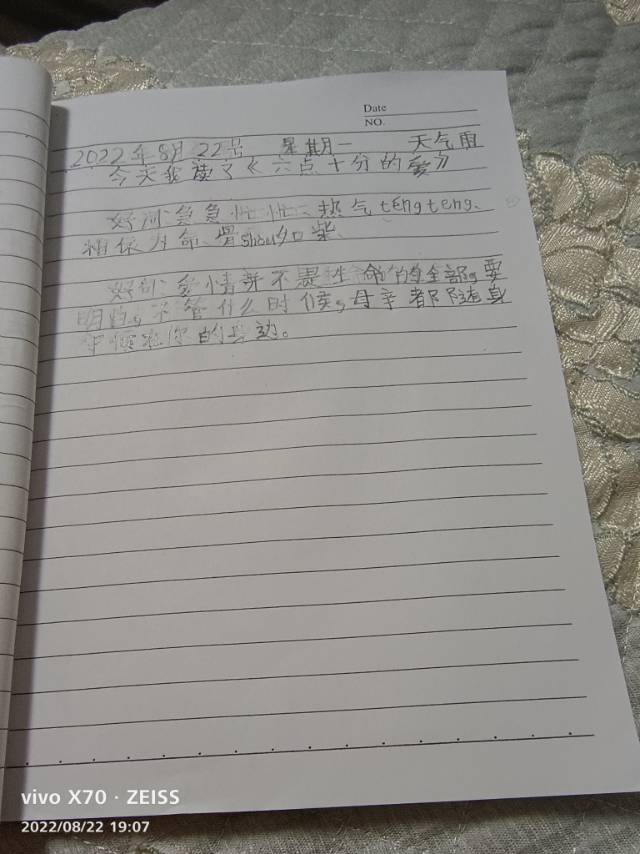 Date
NO.
2022年8月22号 星期一 天气雨
今天我读了《六点十分的爱》
好词:急急忙忙、热气téngteng、
相依为命、骨shòu如柴、
好句:爱情并不是生命的全部,要
明白,不管什么时候,母亲都随身
在你的身边。
vivo X70 · ZEISS
2022/08/22 19:07